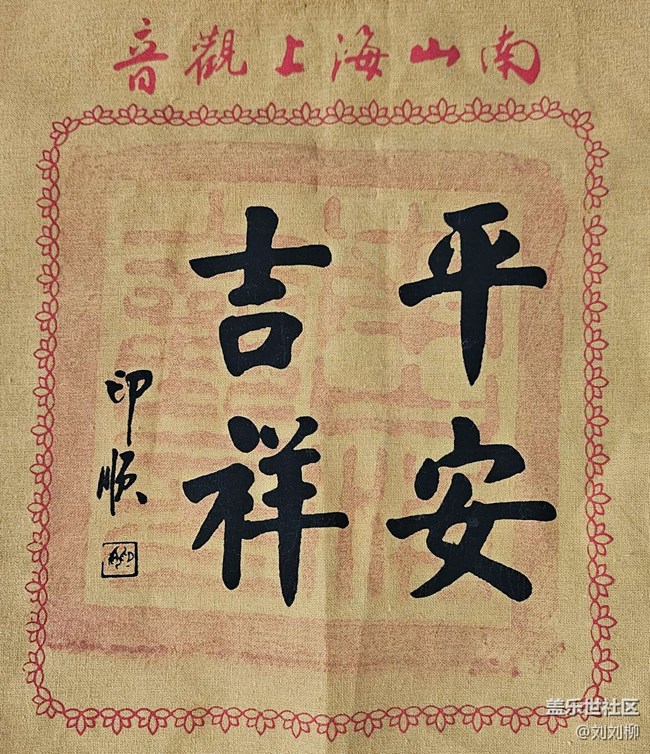 南山海上觀音
平安
吉祥
印順
盖乐世社区
@刘刘柳